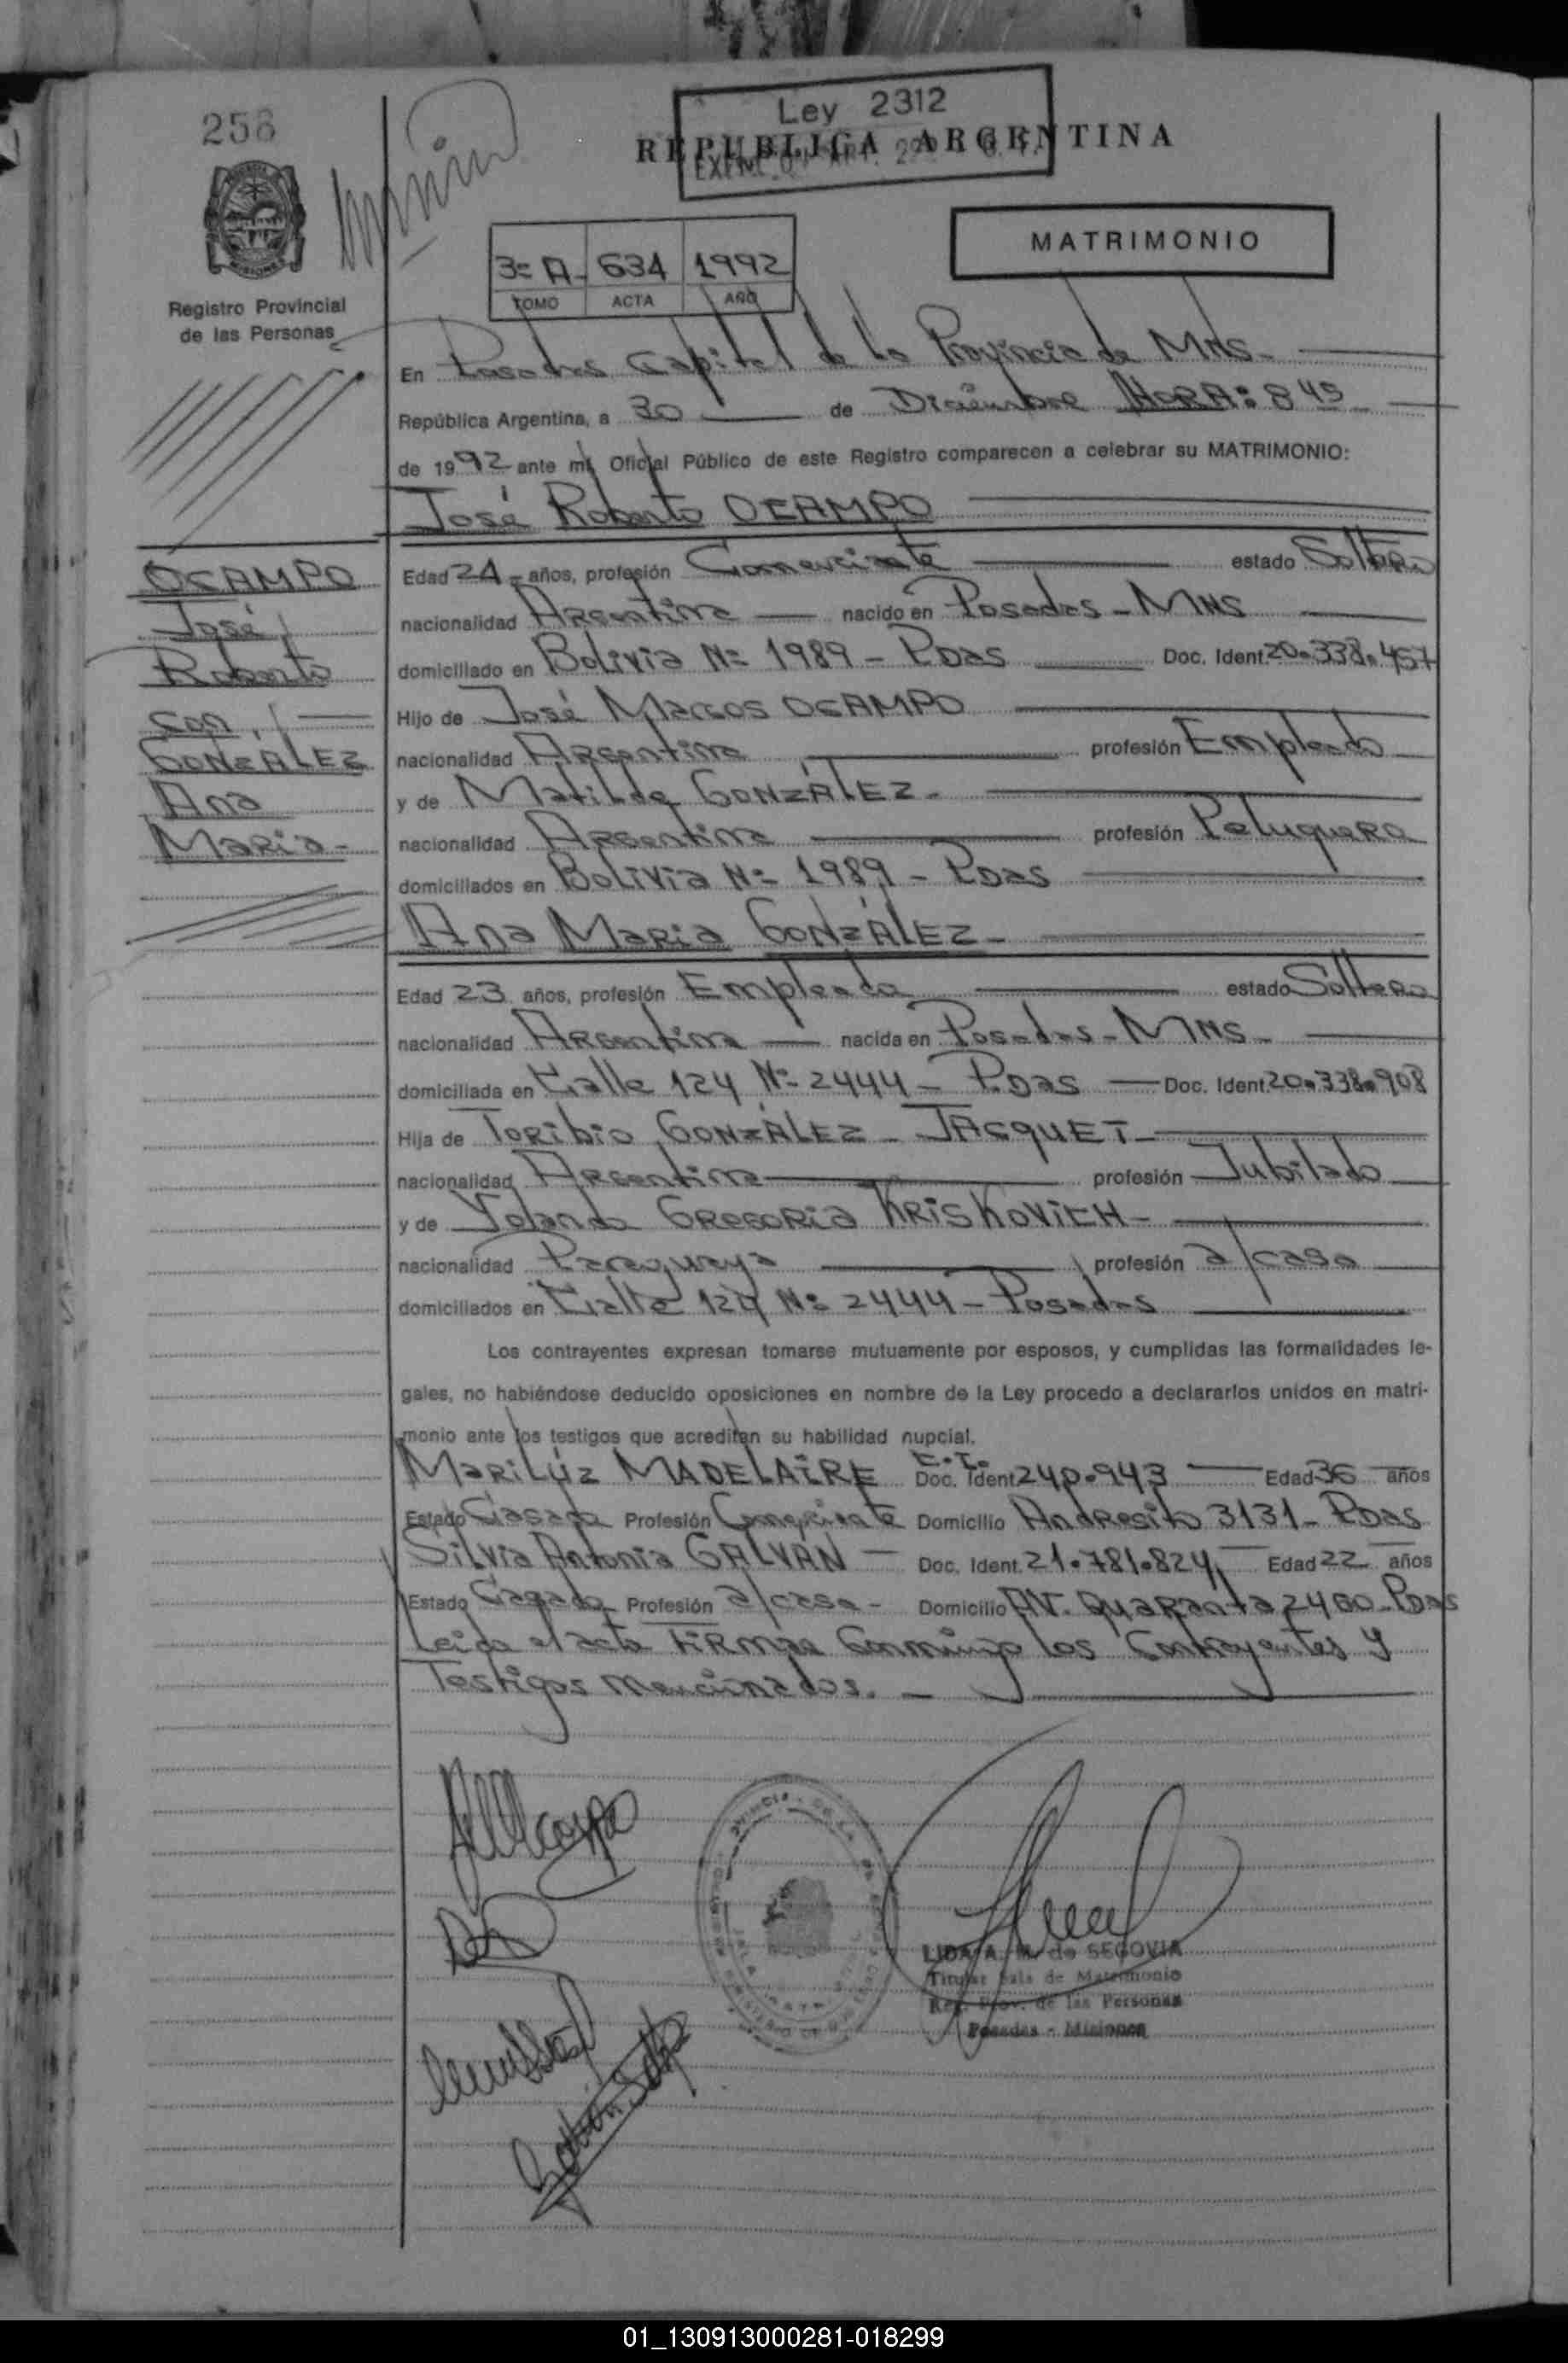 258
Ley 2312
REPUBLICA ARGENTINA
MATRIMONIO
3= A- 634 1992
TOMO ACTA AÑO
Registro Provincial
de las Personas
En Posadas Capital de la Provincia de MNS-
República Argentina, a 30 de Diciembre HORA: 8 45
de 1992 ante mí, Oficial Público de este Registro comparecen a celebrar su MATRIMONIO:
José Roberto OCAMPO
OCAMPO
José
Roberto
con
GONZÁLEZ
Ana
Maria-
Edad 24 años, profesión Comerciante estado Soltero
nacionalidad Argentina nacido en Posadas - MNS
domiciliado en Bolivia N= 1989 - Pdas Doc. Ident. 20.338.457
Hijo de José Marcos OCAMPO
nacionalidad Argentina profesión Empleado
y de Matilde GONZÁLEZ-
nacionalidad Argentina profesión Peluquera
domiciliados en Bolivia N= 1989 - Pdas
Ana Maria GONZÁLEZ-
Edad 23 años, profesión Empleada estado Soltera
nacionalidad Argentina nacida en Posadas - MNS-
domiciliada en Calle 124 N= 2444 - Pdas Doc. Ident. 20.338.908
Hija de Toribio GONZÁLEZ - JACQUET-
nacionalidad Argentina profesión Jubilado
y de Yolanda GREGORIA KRISKOVICH-
nacionalidad Paraguaya profesión a/casa
domiciliados en Calle 124 N= 2444 - Posadas
Los contrayentes expresan tomarse mutuamente por esposos, y cumplidas las formalidades le-
gales, no habiéndose deducido oposiciones en nombre de la Ley procedo a declararlos unidos en matri-
monio ante los testigos que acreditan su habilidad nupcial.
MariLúz MADELAIRE C.I. Doc. Ident 240.943 Edad 36 años
Estado Casada Profesión Comerciante Domicilio Andresito 3131 - Pdas
Silvia Antonia GALVAN Doc. Ident. 21.781.824 Edad 22 años
Estado Casada Profesión a/casa - Domicilio AV. Quaranta 2460 - Pdas
Leida el acta FIRMAN Conmigo los Contrayentes y
Testigos mencionados. -
LIDA A. M. de SEGOVIA
Titular Sala de Matrimonio
Reg. Prov. de las Personas
Posadas - Misiones
01_130913000281-018299